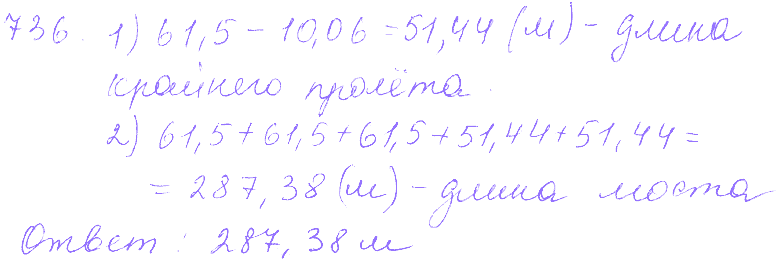 736. 1) 61,5 - 10,06 = 51,44 (м) - длина
крайнего пролёта.
2) 61,5 + 61,5 + 61,5 + 51,44 + 51,44 =
= 287,38 (м) - длина моста
Ответ: 287,38 м